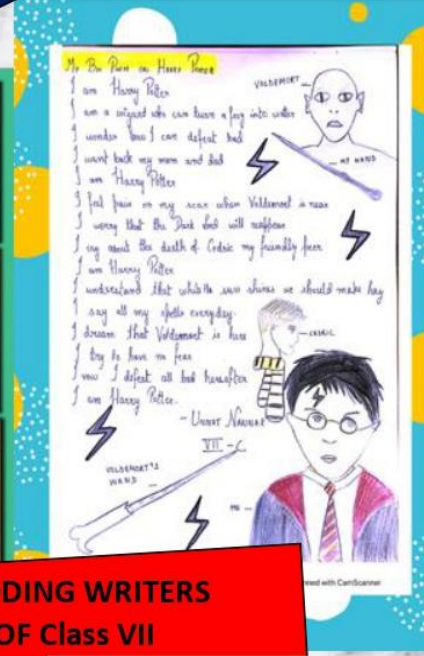 My Bio Poem on Harry Potter
I am Harry Potter
I am a wizard who can turn a frog into water
I wonder how I can defeat bad
I want back my mom and dad
I am Harry Potter
I feel pain on my scar when Voldemort is near
I worry that the Dark lord will reappear
I cry about the death of Cedric my friendly peer
I am Harry Potter
I understand that while the sun shines we should make hay
I say all my spells everyday.
I dream that Voldemort is here
I try to have no fear
I vow I defeat all bad hereafter
I am Harry Potter.
- Unnat
VII - C
VOLDEMORT
MY WAND
CEDRIC
VOLDEMORT'S
WAND
ME
nned with CamScanner
DING WRITERS
OF Class VII